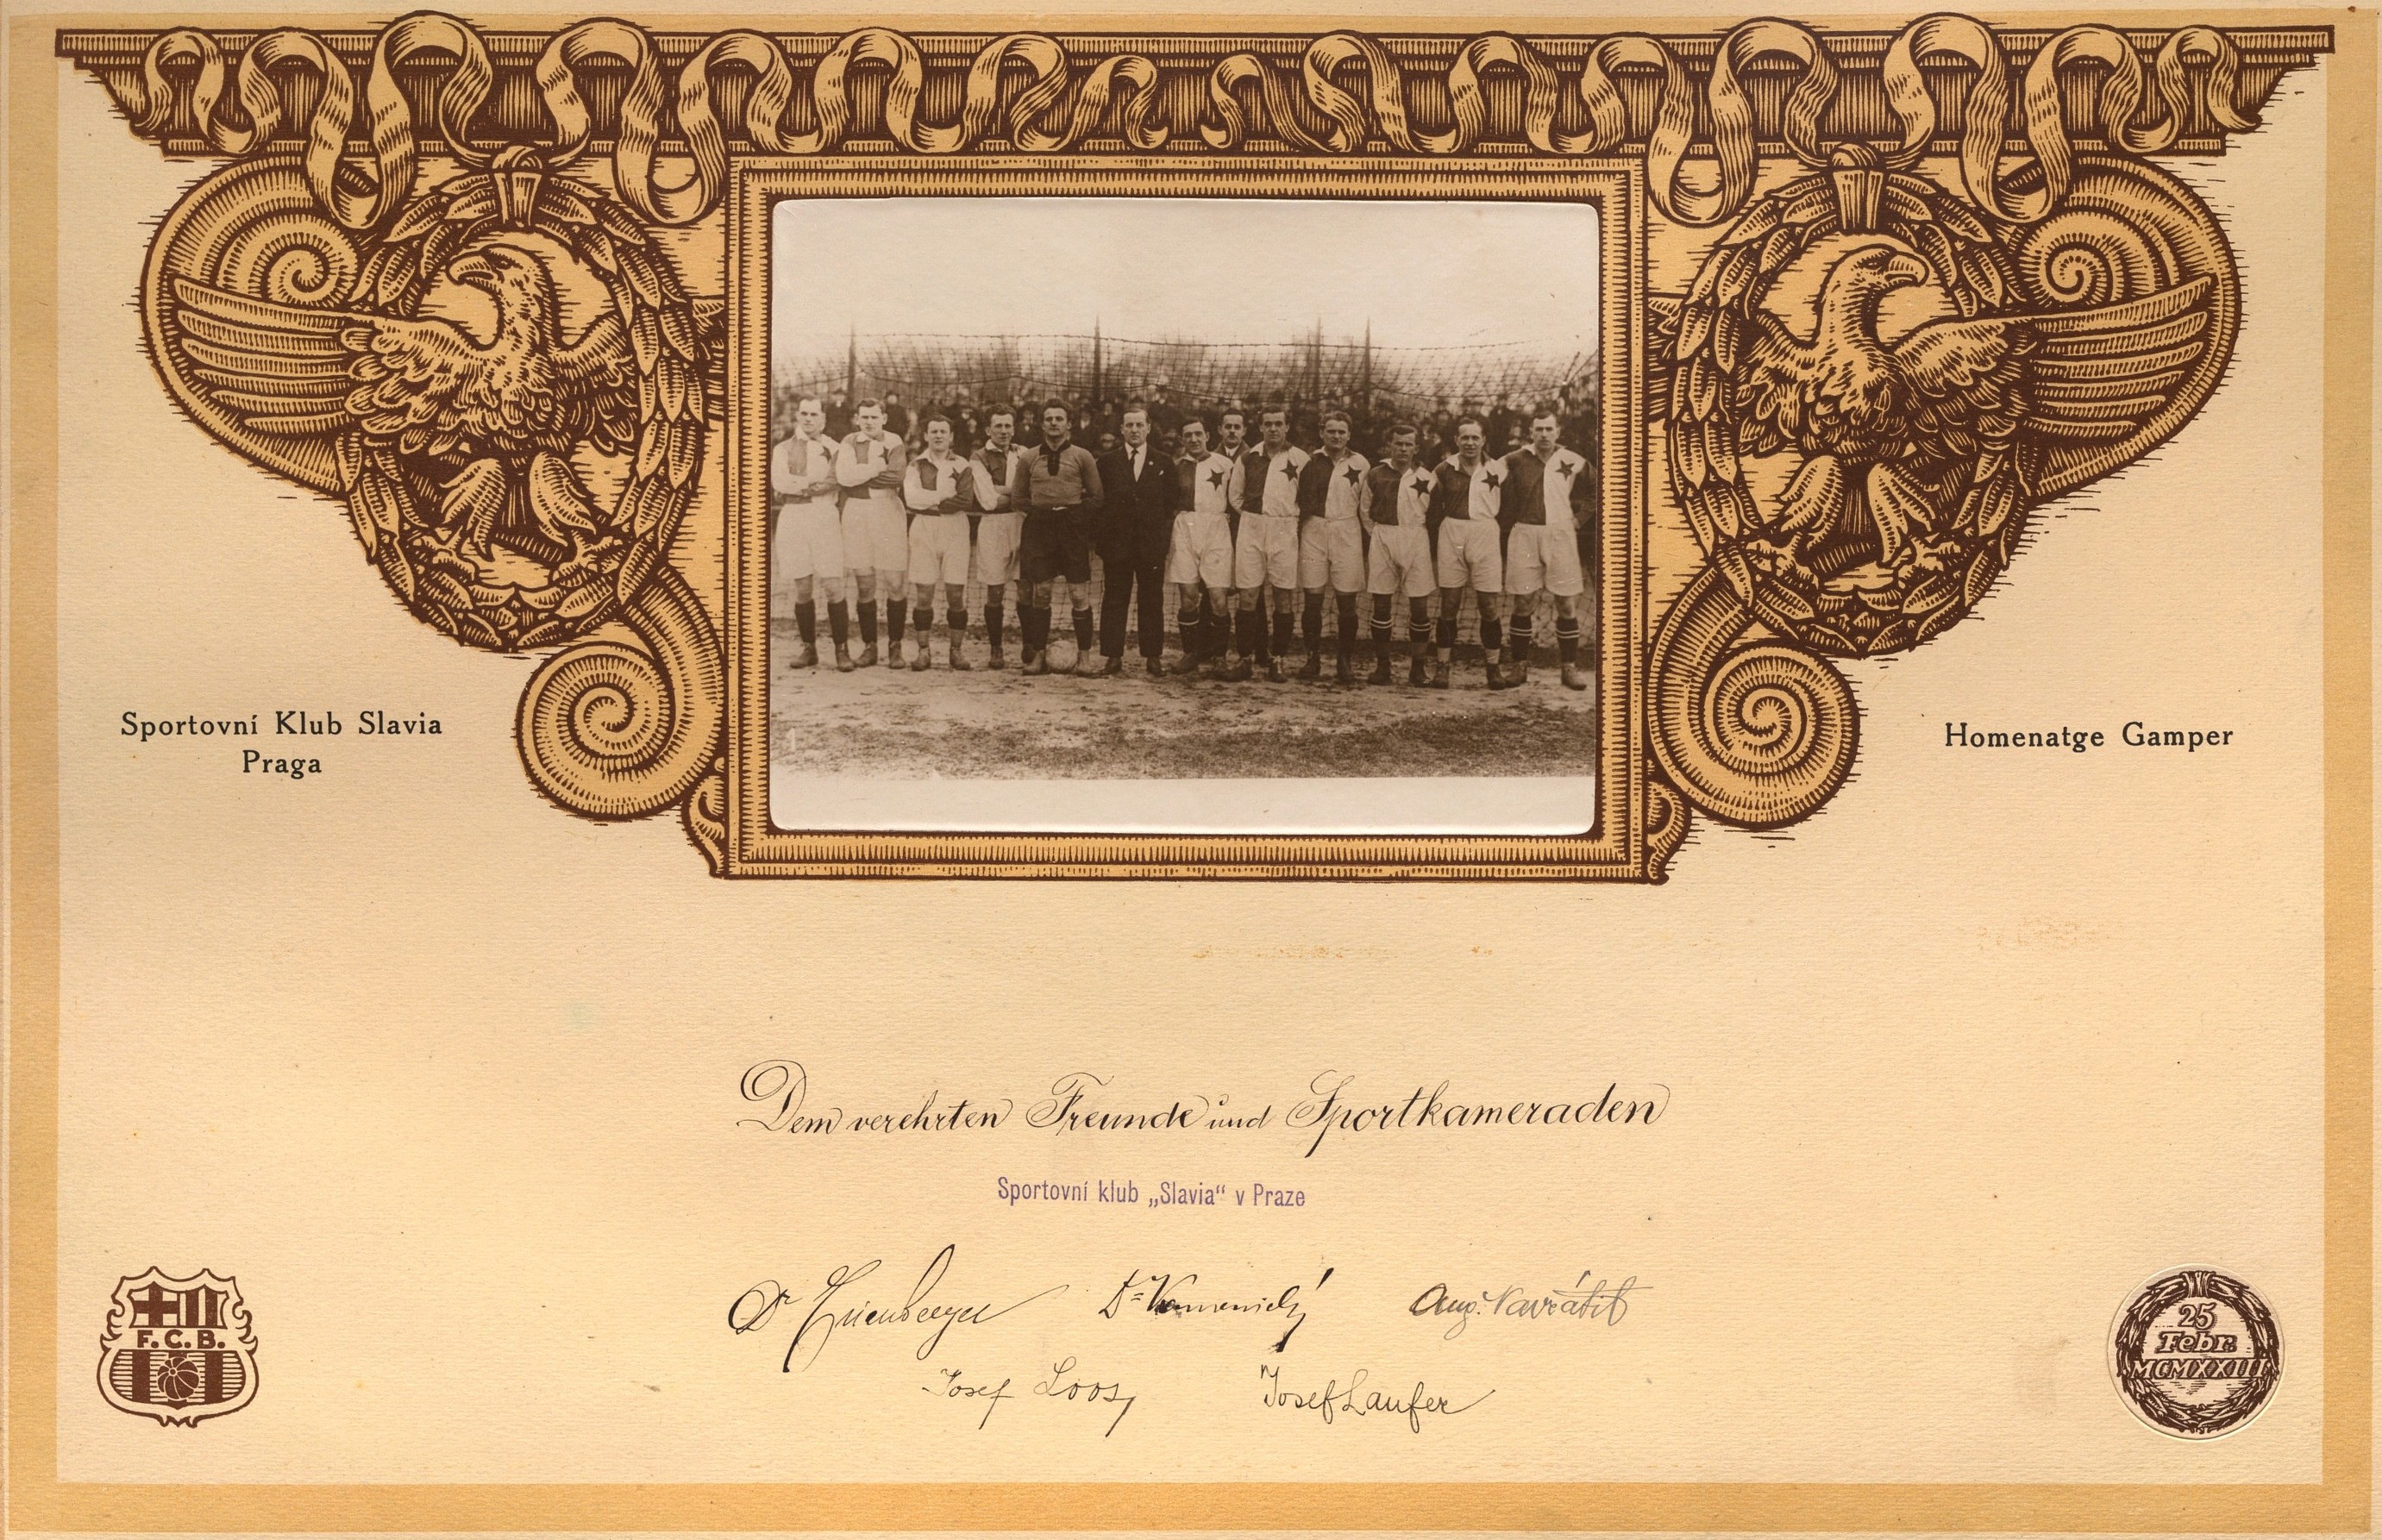 Sportovní Klub Slavia
Praga
Homenatge Gamper
Dem verehrten Freunde und Sportkameraden
Sportovní klub „Slavia“ v Praze
Dr
Dr Kamenický Aug. Navrátil
Josef Loos, Josef Laufer
F.C.B.
25
Febr.
MCMXXIII